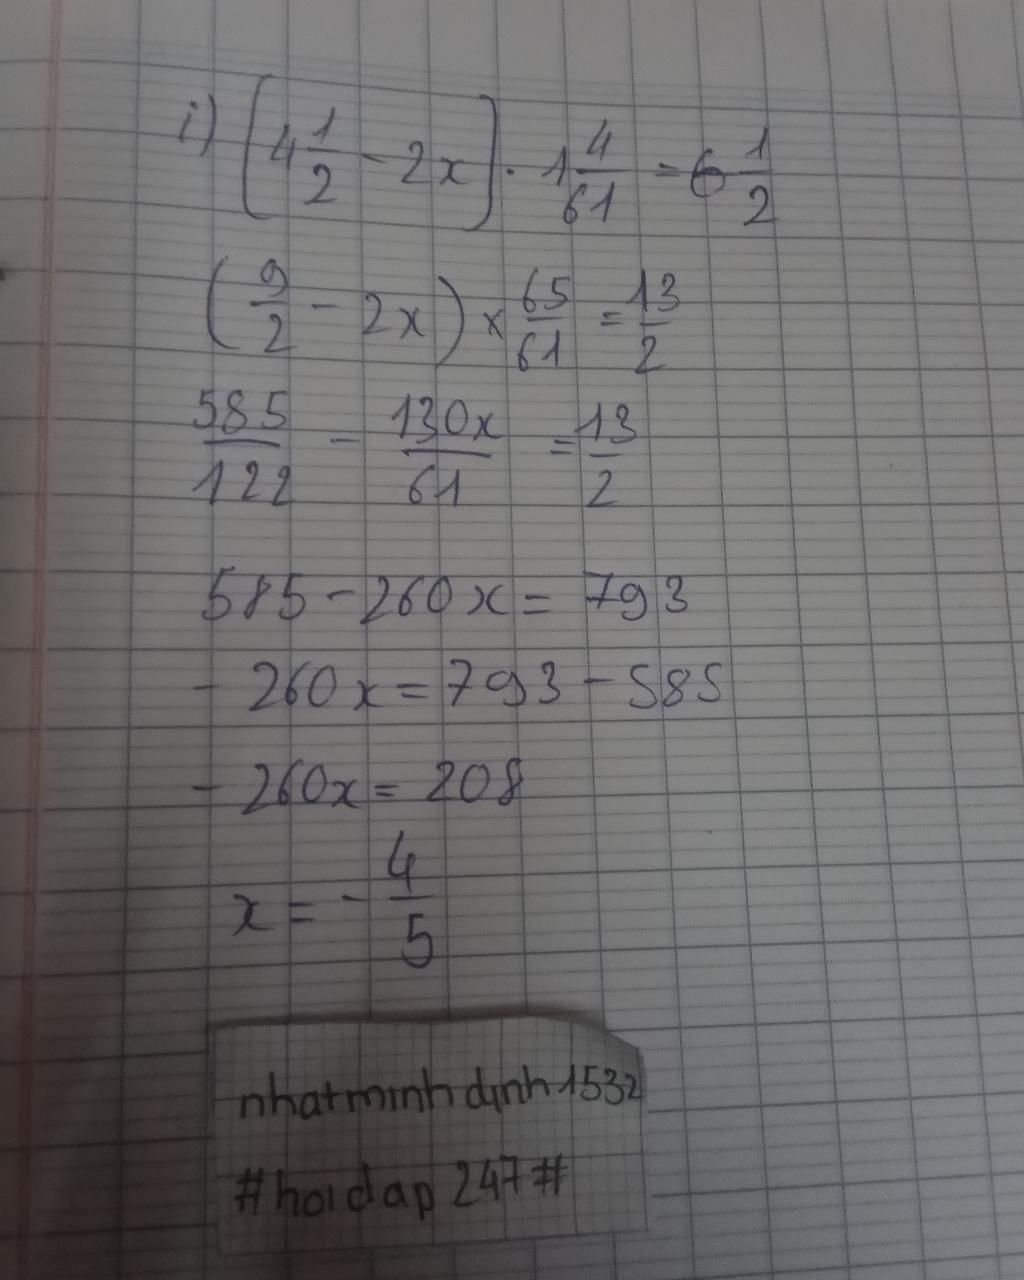 i) [4 1/2 - 2x] . 1 4/61 = 6 1/2
(9/2 - 2x) × 65/61 = 13/2
585/122 - 130x/61 = 13/2
585 - 260x = 793
- 260x = 793 - 585
- 260x = 208
x = - 4/5
nhatminhdinh1532
#hoidap247#